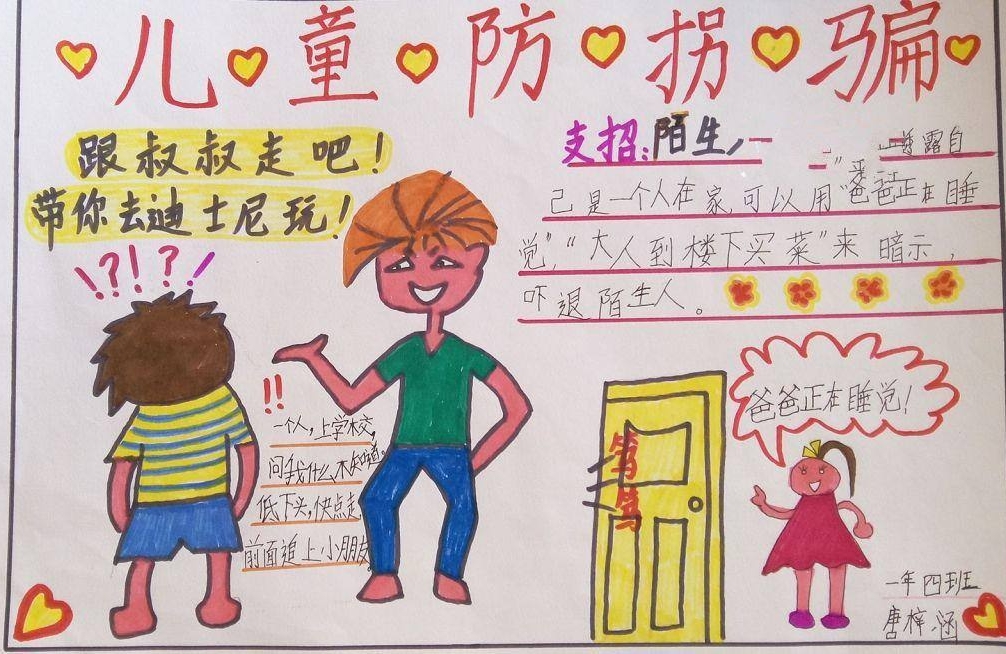 儿童防拐骗
跟叔叔走吧!
带你去迪士尼玩!
\?!?/
支招:陌生
露自
己是一个人在家,可以用"爸爸正在睡
觉","大人到楼下买菜"来暗示,
吓退陌生人。
!!
一个人,上学校,
问我什么,不知道。
低下头,快点走,
前面追上小朋友
笃
笃
爸爸正在睡觉!
一年四班
唐梓涵